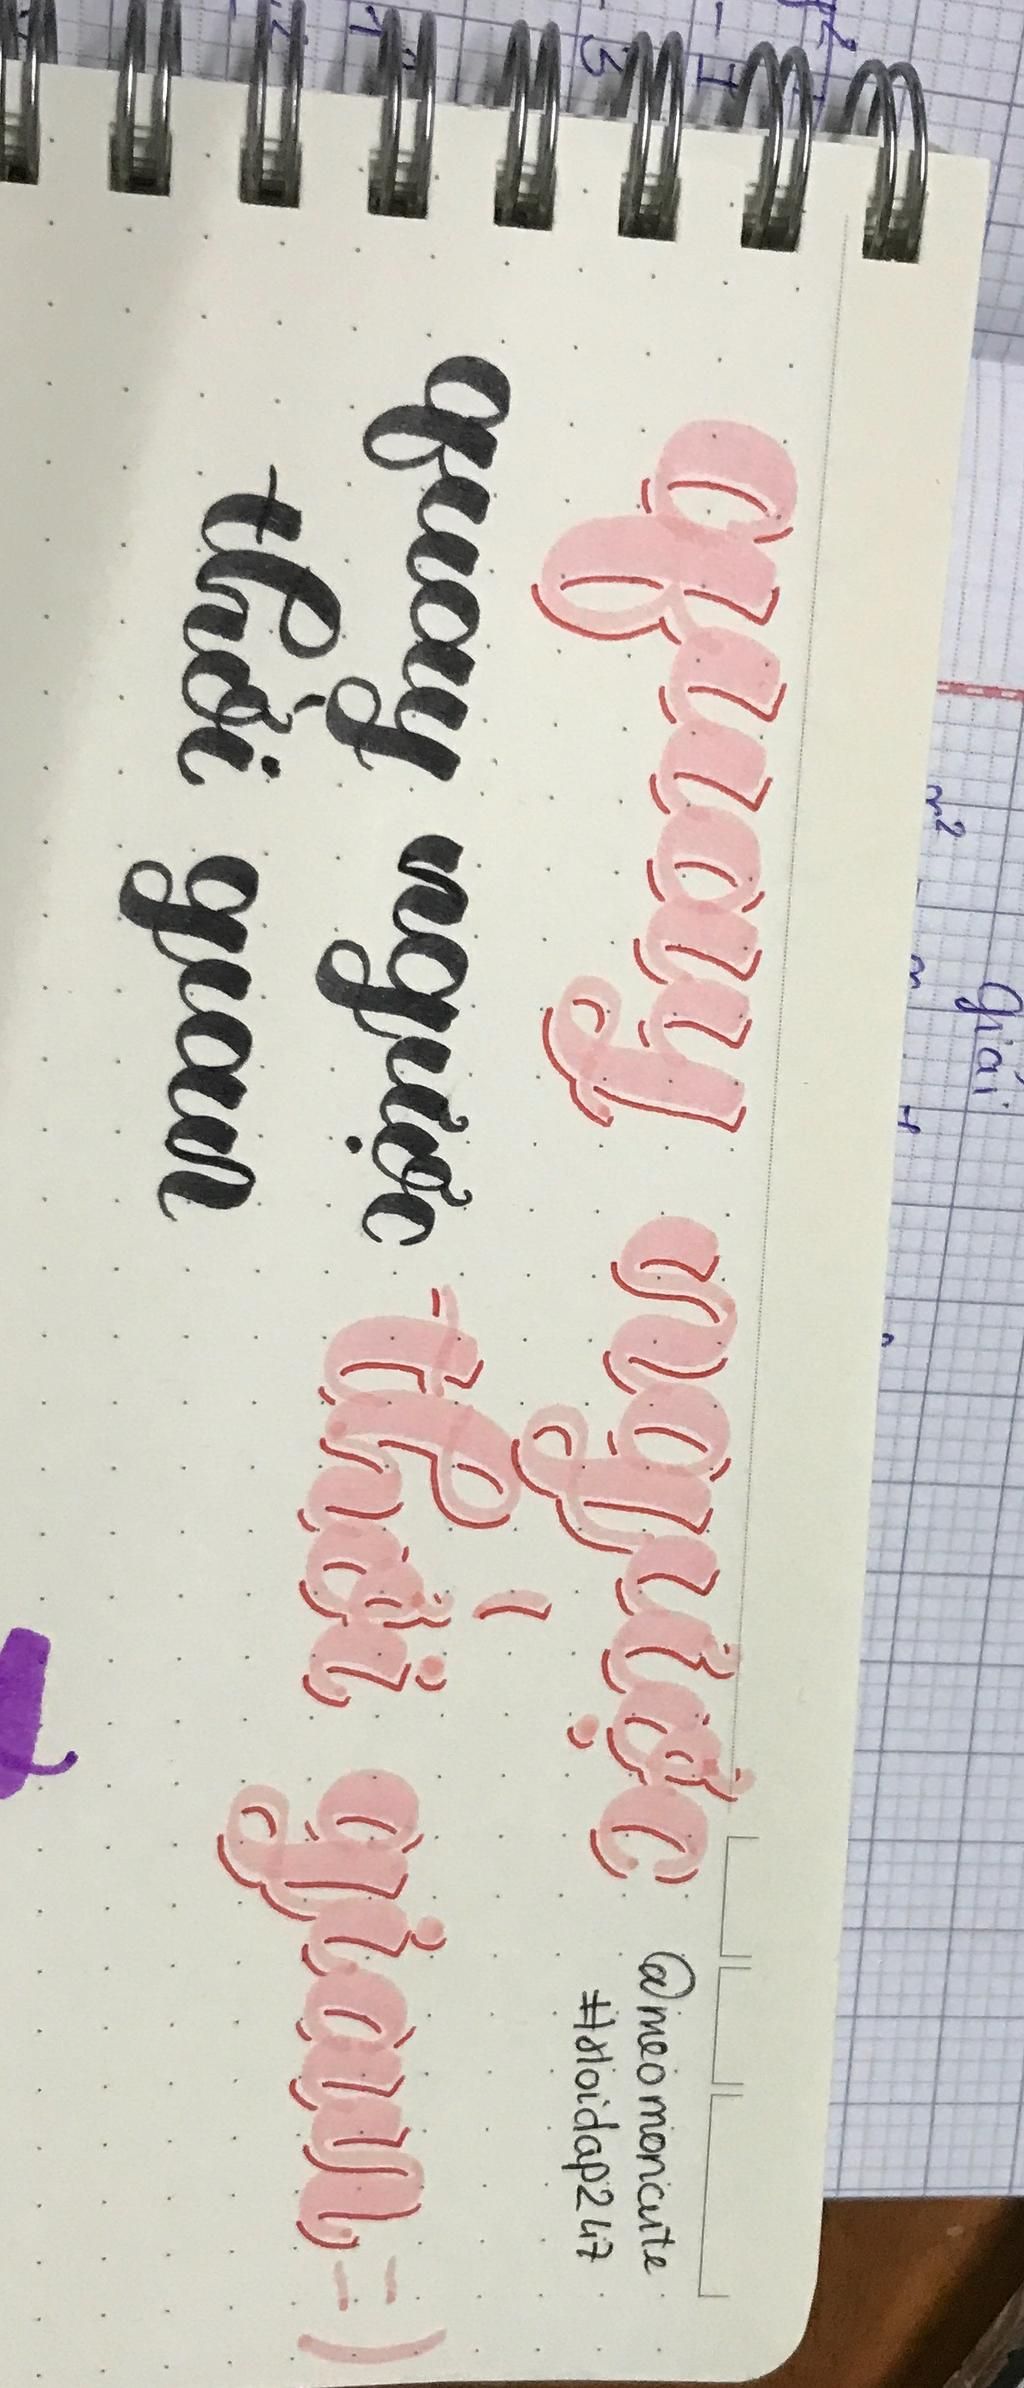 quay ngược
thời gian =)
@meomoncute
#hloidap247
quay ngược
thời gian
Giải